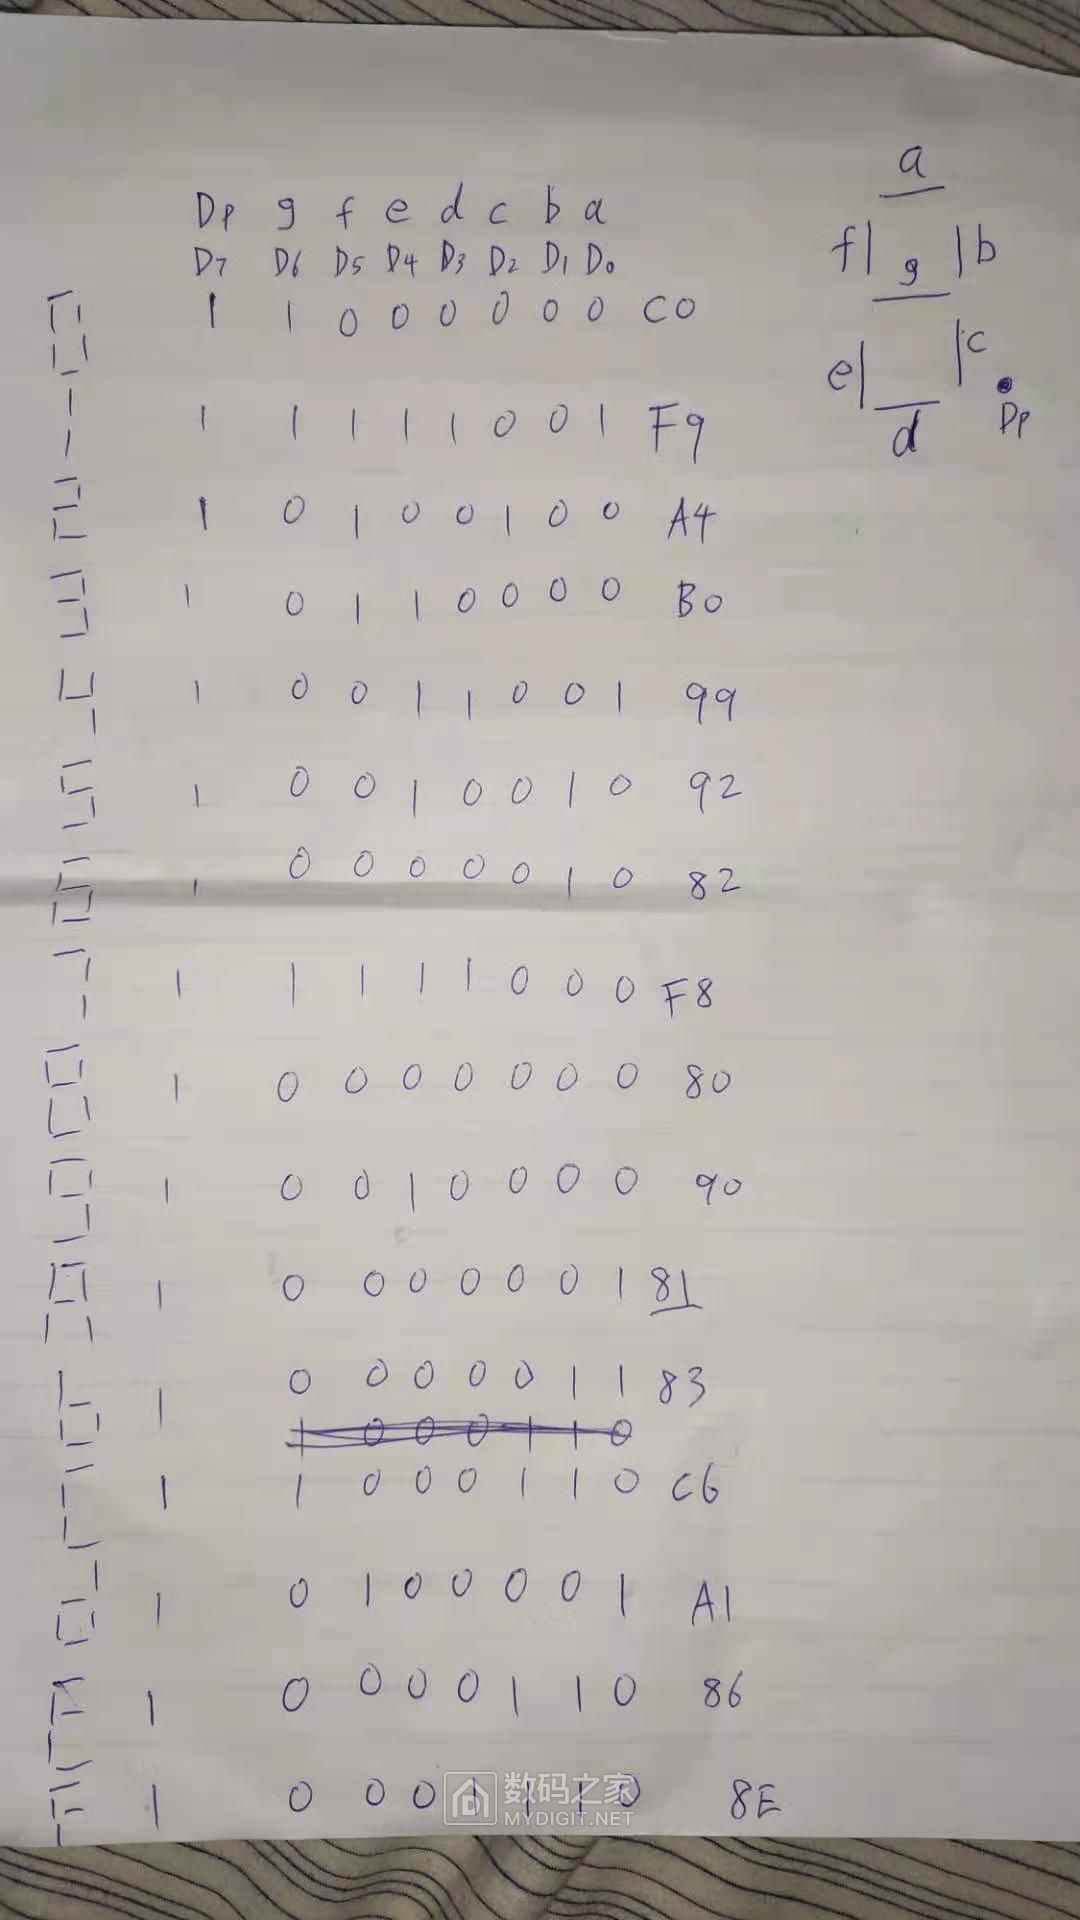 a
Dp g f e d c b a
f| g |b
D7 D6 D5 D4 D3 D2 D1 D0
1 1 0 0 0 0 0 0 C0
e| |c
d Dp
1 1 1 1 1 0 0 1 F9
1 0 1 0 0 1 0 0 A4
1 0 1 1 0 0 0 0 B0
1 0 0 1 1 0 0 1 99
1 0 0 1 0 0 1 0 92
1 0 0 0 0 0 1 0 82
1 1 1 1 1 0 0 0 F8
1 0 0 0 0 0 0 0 80
1 0 0 1 0 0 0 0 90
1 0 0 0 0 0 0 1 81
1 0 0 0 0 0 1 1 83
1 0 0 0 1 1 0
1 1 0 0 0 1 1 0 C6
1 0 1 0 0 0 0 1 A1
1 0 0 0 0 1 1 0 86
1 0 0 0 1 1 1 0 8E
数码之家
MYDIGIT.NET